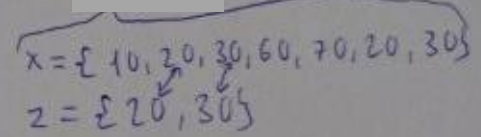 x={ 10, 20, 30, 60, 70, 20, 30}
z = {20, 30}